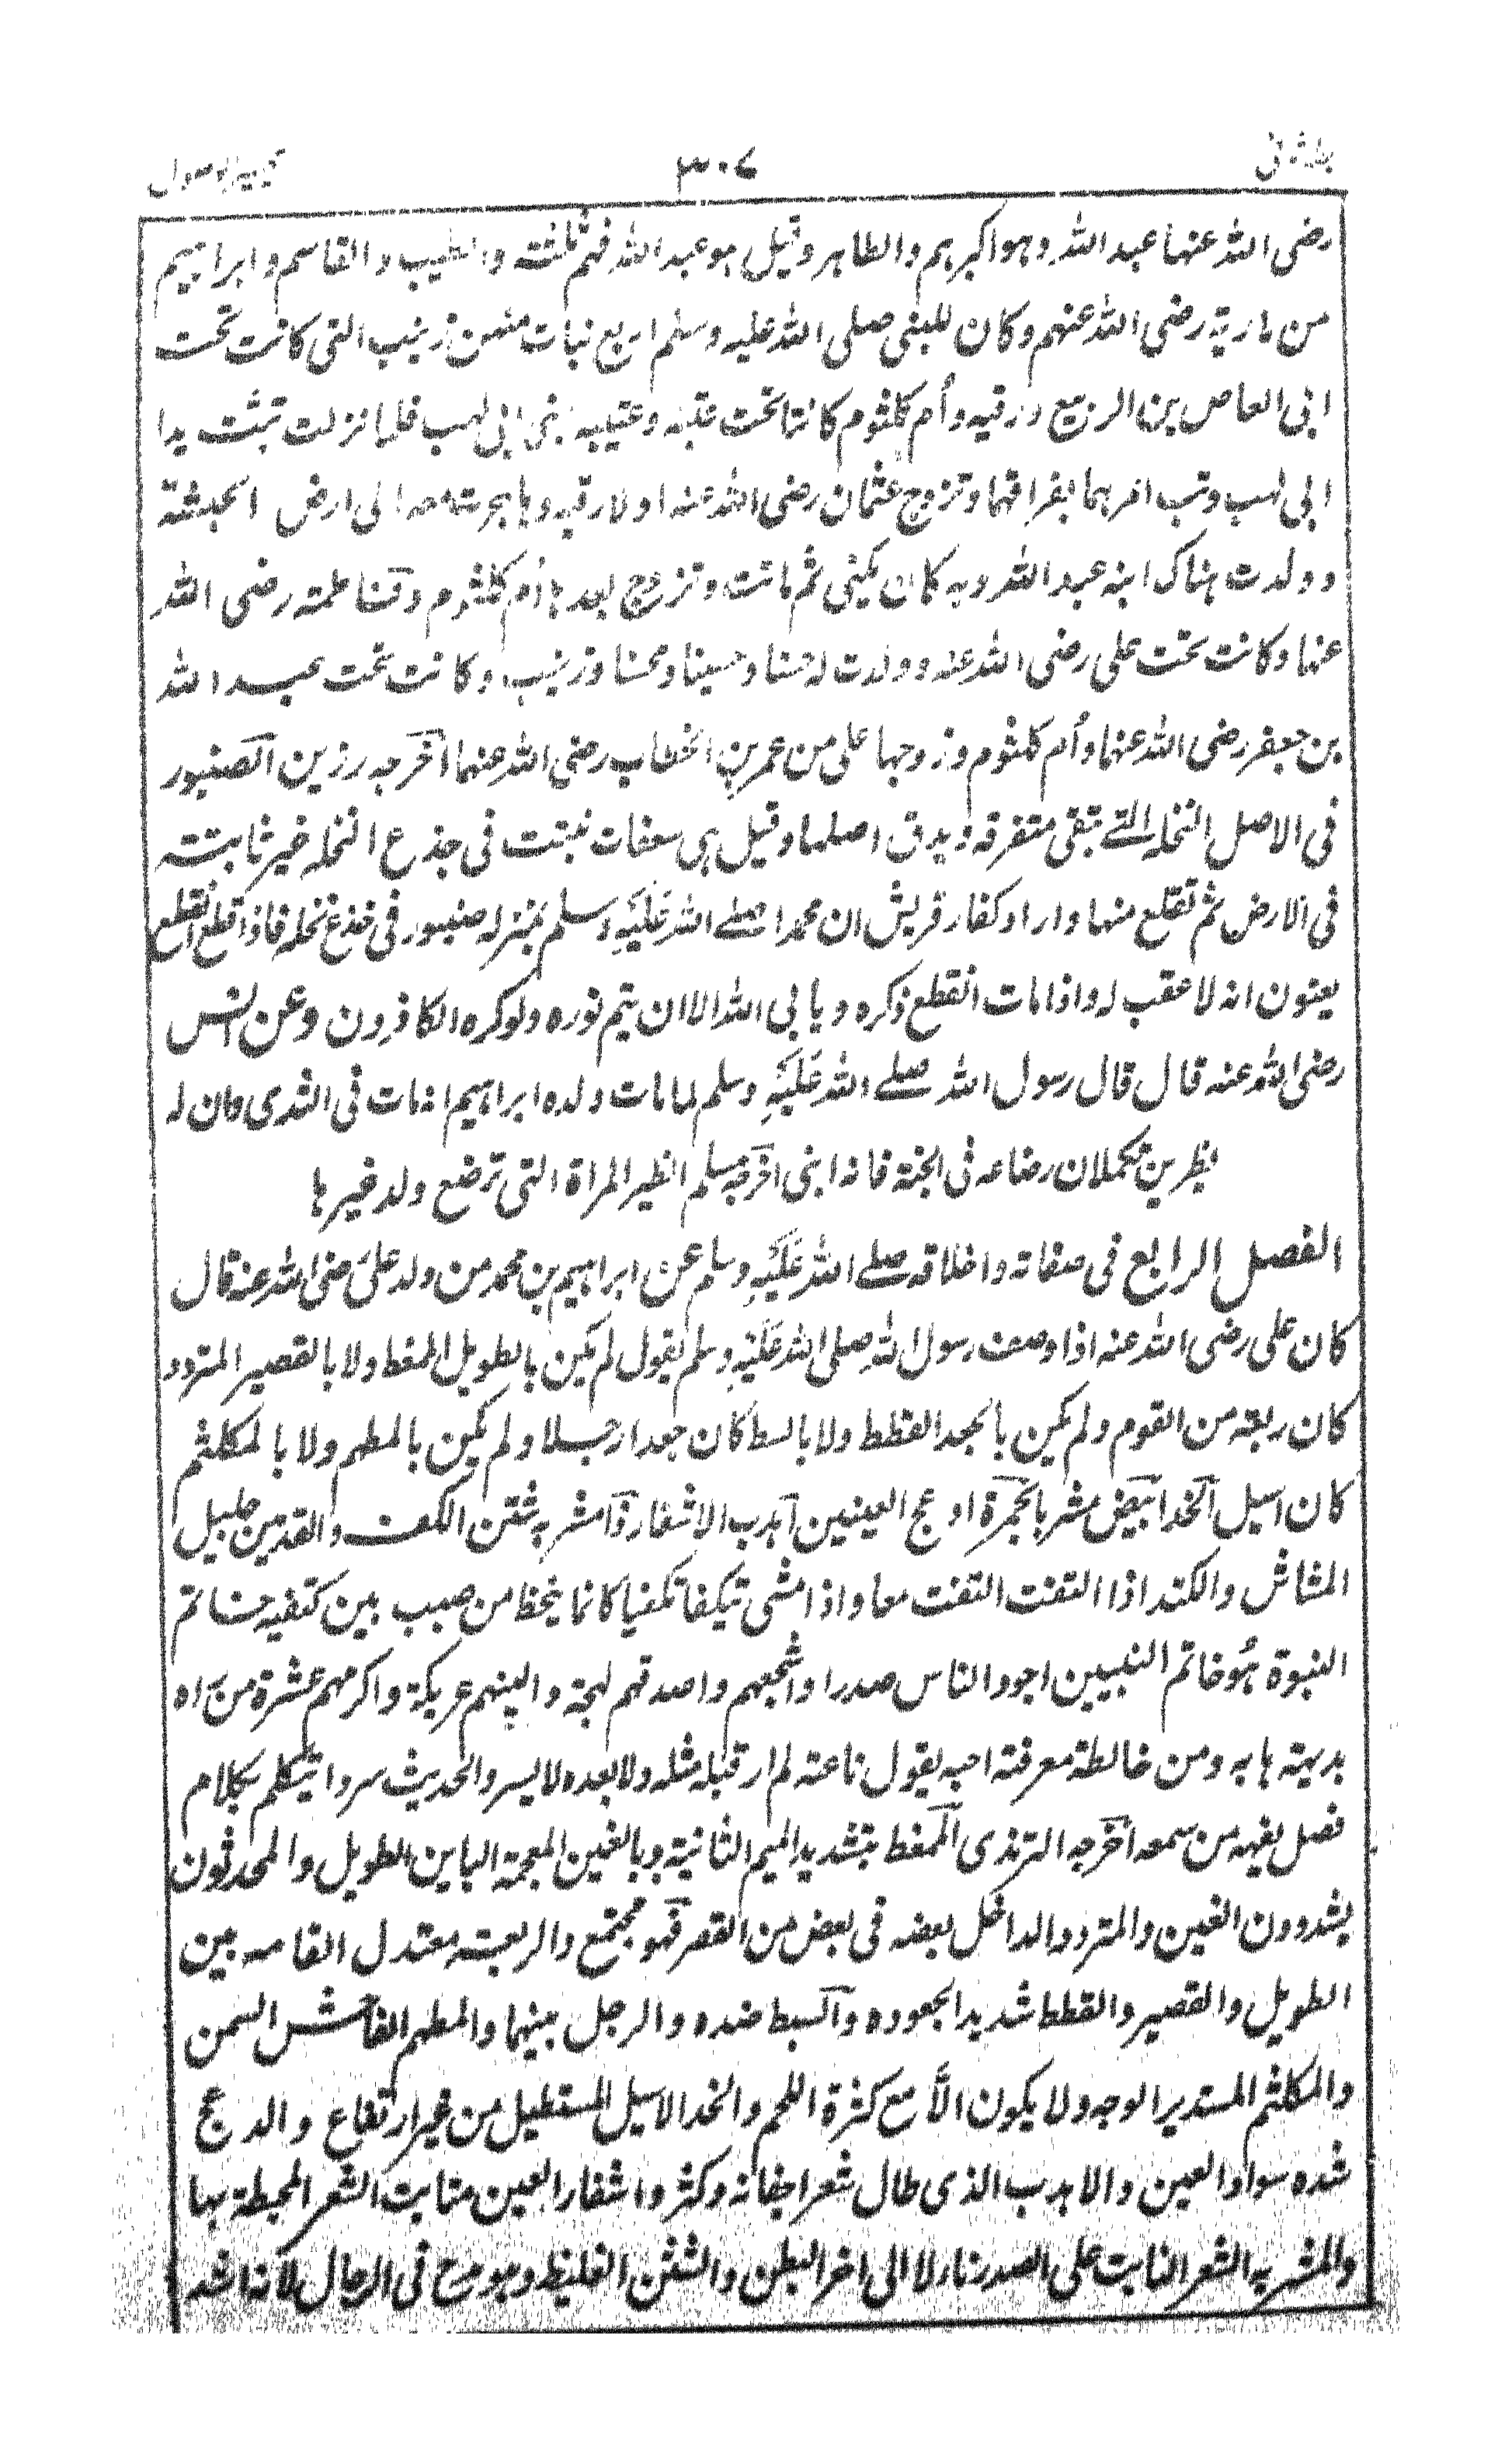 جلد ثانی ٣٠٧ تیسیر الوصول
رضی الله عنها عبد الله وهو اکبرهم والطاهر وقیل هو عبد الله فهم ثلثة والطیب والقاسم وابراهیم
من ماریة رضی الله عنهم وکان للنبی صلی الله علیه وسلم اربع بنات منهن زینب التی کانت تحت
ابی العاص بن الربیع ورقیه وأم کلثوم کانتا تحت عتبه وعتیبه بنی ابی لهب فلما نزلت تبت یدا
ابی لهب وتب امرهما بفراقهما وتزوج عثمان رضی الله عنه اولا رقیه وهاجرت معه الی ارض الحبشة
وولدت هناک ابنه عبد الله وبه کان یکنی ثم ماتت وتزوج بعدها أم کلثوم وفاطمة رضی الله
عنها وکانت تحت علی رضی الله عنه وولدت له حسنا وحسینا ومحسنا وزینب وکانت تحت عبد الله
بن جعفر رضی الله عنهما وأم کلثوم وزوجها علی من عمر بن الخطاب رضی الله عنهما اخرجه رزین الصنبور
فی الاصل النخلة التے تبقی متفرقه ویدق اصلها وقیل هی سعفات نبتت فی جذع النخله غیر ثابتة
فی الارض ثم تقلع منها وارادکفار قریش ان محمدا صلے الله علیه وسلم بمنزله صنبور فی جذع نخله فاذا قطع انقطع
یعنون انه لا عقب له واذا مات انقطع ذکره ویابی الله الا ان یتم نوره ولوکره الکافرون وعن انس
رضی الله عنه قال قال رسول الله صلے الله علیه وسلم لما مات ولده ابراهیم انه مات فی الثدی وان له
بظرین تکملان رضاعه فی الجنة فانه ابنی اخرجه مسلم الظیر المراة التی ترضع ولد غیرها
الفصل الرابع فی صفاته واخلاقه صلے الله علیه وسلم عن ابراهیم بن محمد من ولد علی رضی الله عنه قال
کان علی رضی الله عنه اذا وصف رسول الله صلی الله علیه وسلم یقول لم یکن بالطویل الممغط ولا بالقصیر المتردد
کان ربعة من القوم ولم یکن بالجعد القطط ولا بالسبط کان جعدا رجلا ولم یکن بالمطهم ولا بالمکلثم
کان اسیل الخد ابیض مشربا بحمرة ادعج العینین اهدب الاشفار ذا مشربه شثن الکف والقدمین جلیل
المشاش والکتد اذا التفت التفت معا واذا مشی تیکفا تکفیا کانما ینحط من صبب بین کتفیه خاتم
النبوة هو خاتم النبیین اجود الناس صدرا واشجعهم واصدقهم لهجة والینهم عریکة واکرمهم عشرة من راه
بدیهة هابه ومن خالطه معرفة احبه یقول ناعته لم ار قبله مثله ولا بعده لا یسرد الحدیث سردا یتکلم بکلام
فصل یفهمه من سمعه اخرجه الترمذی الممغط بتشدید المیم الثانیة وبالغین المعجمة الباین الطویل والمحدثون
یشددون الغین والمتردد الداخل بعضه فی بعض من القصر فهو مجتمع والربعة معتدل القامه بین
الطویل والقصیر والقطط شدید الجعوده والسبط ضده والرجل بینهما والمطهم الفاحش السمن
والمکلثم المستدیر الوجه ولا یکون الا مع کثرة اللحم والخد الاسیل المستطیل من غیر ارتفاع والدعج
شده سواد العین والاهدب الذی طال شعر اجفانه وکثر واشفار العین منابت الشعر المحیطة بها
والمشربه الشعر النابت علی الصدر نازلا الی اخر البطن والشثن الغلیظ وهو مدح فی الرجال لانه اشد